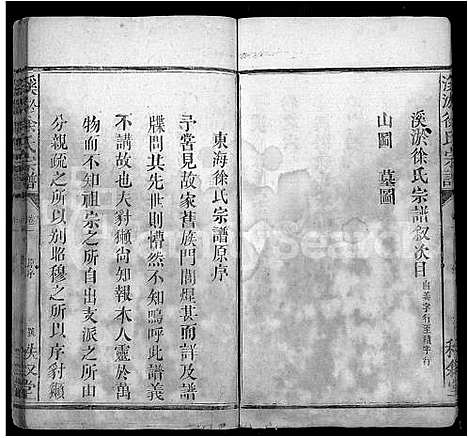 溪淤徐氏宗譜
溪淤徐氏宗譜叙次目 自美字行至積字行
山圖 墓圖
東海徐氏宗譜原序
予嘗見故家舊族門閥焜甚而詳及譜
牒問其先世則懵然不知嗚呼此譜義
不講故也夫豺獺尚知報本人靈於萬
物而不知祖宗之所自出支派之所由
分親疏之所以別昭穆之所以序豺獺
溪淤徐氏宗譜
卷一
原序
敘堂
FamilySearch